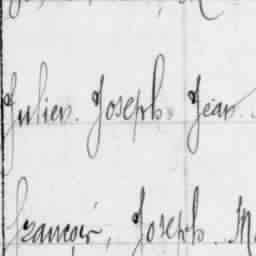 Julien. Joseph. Jean.
François, Joseph. M